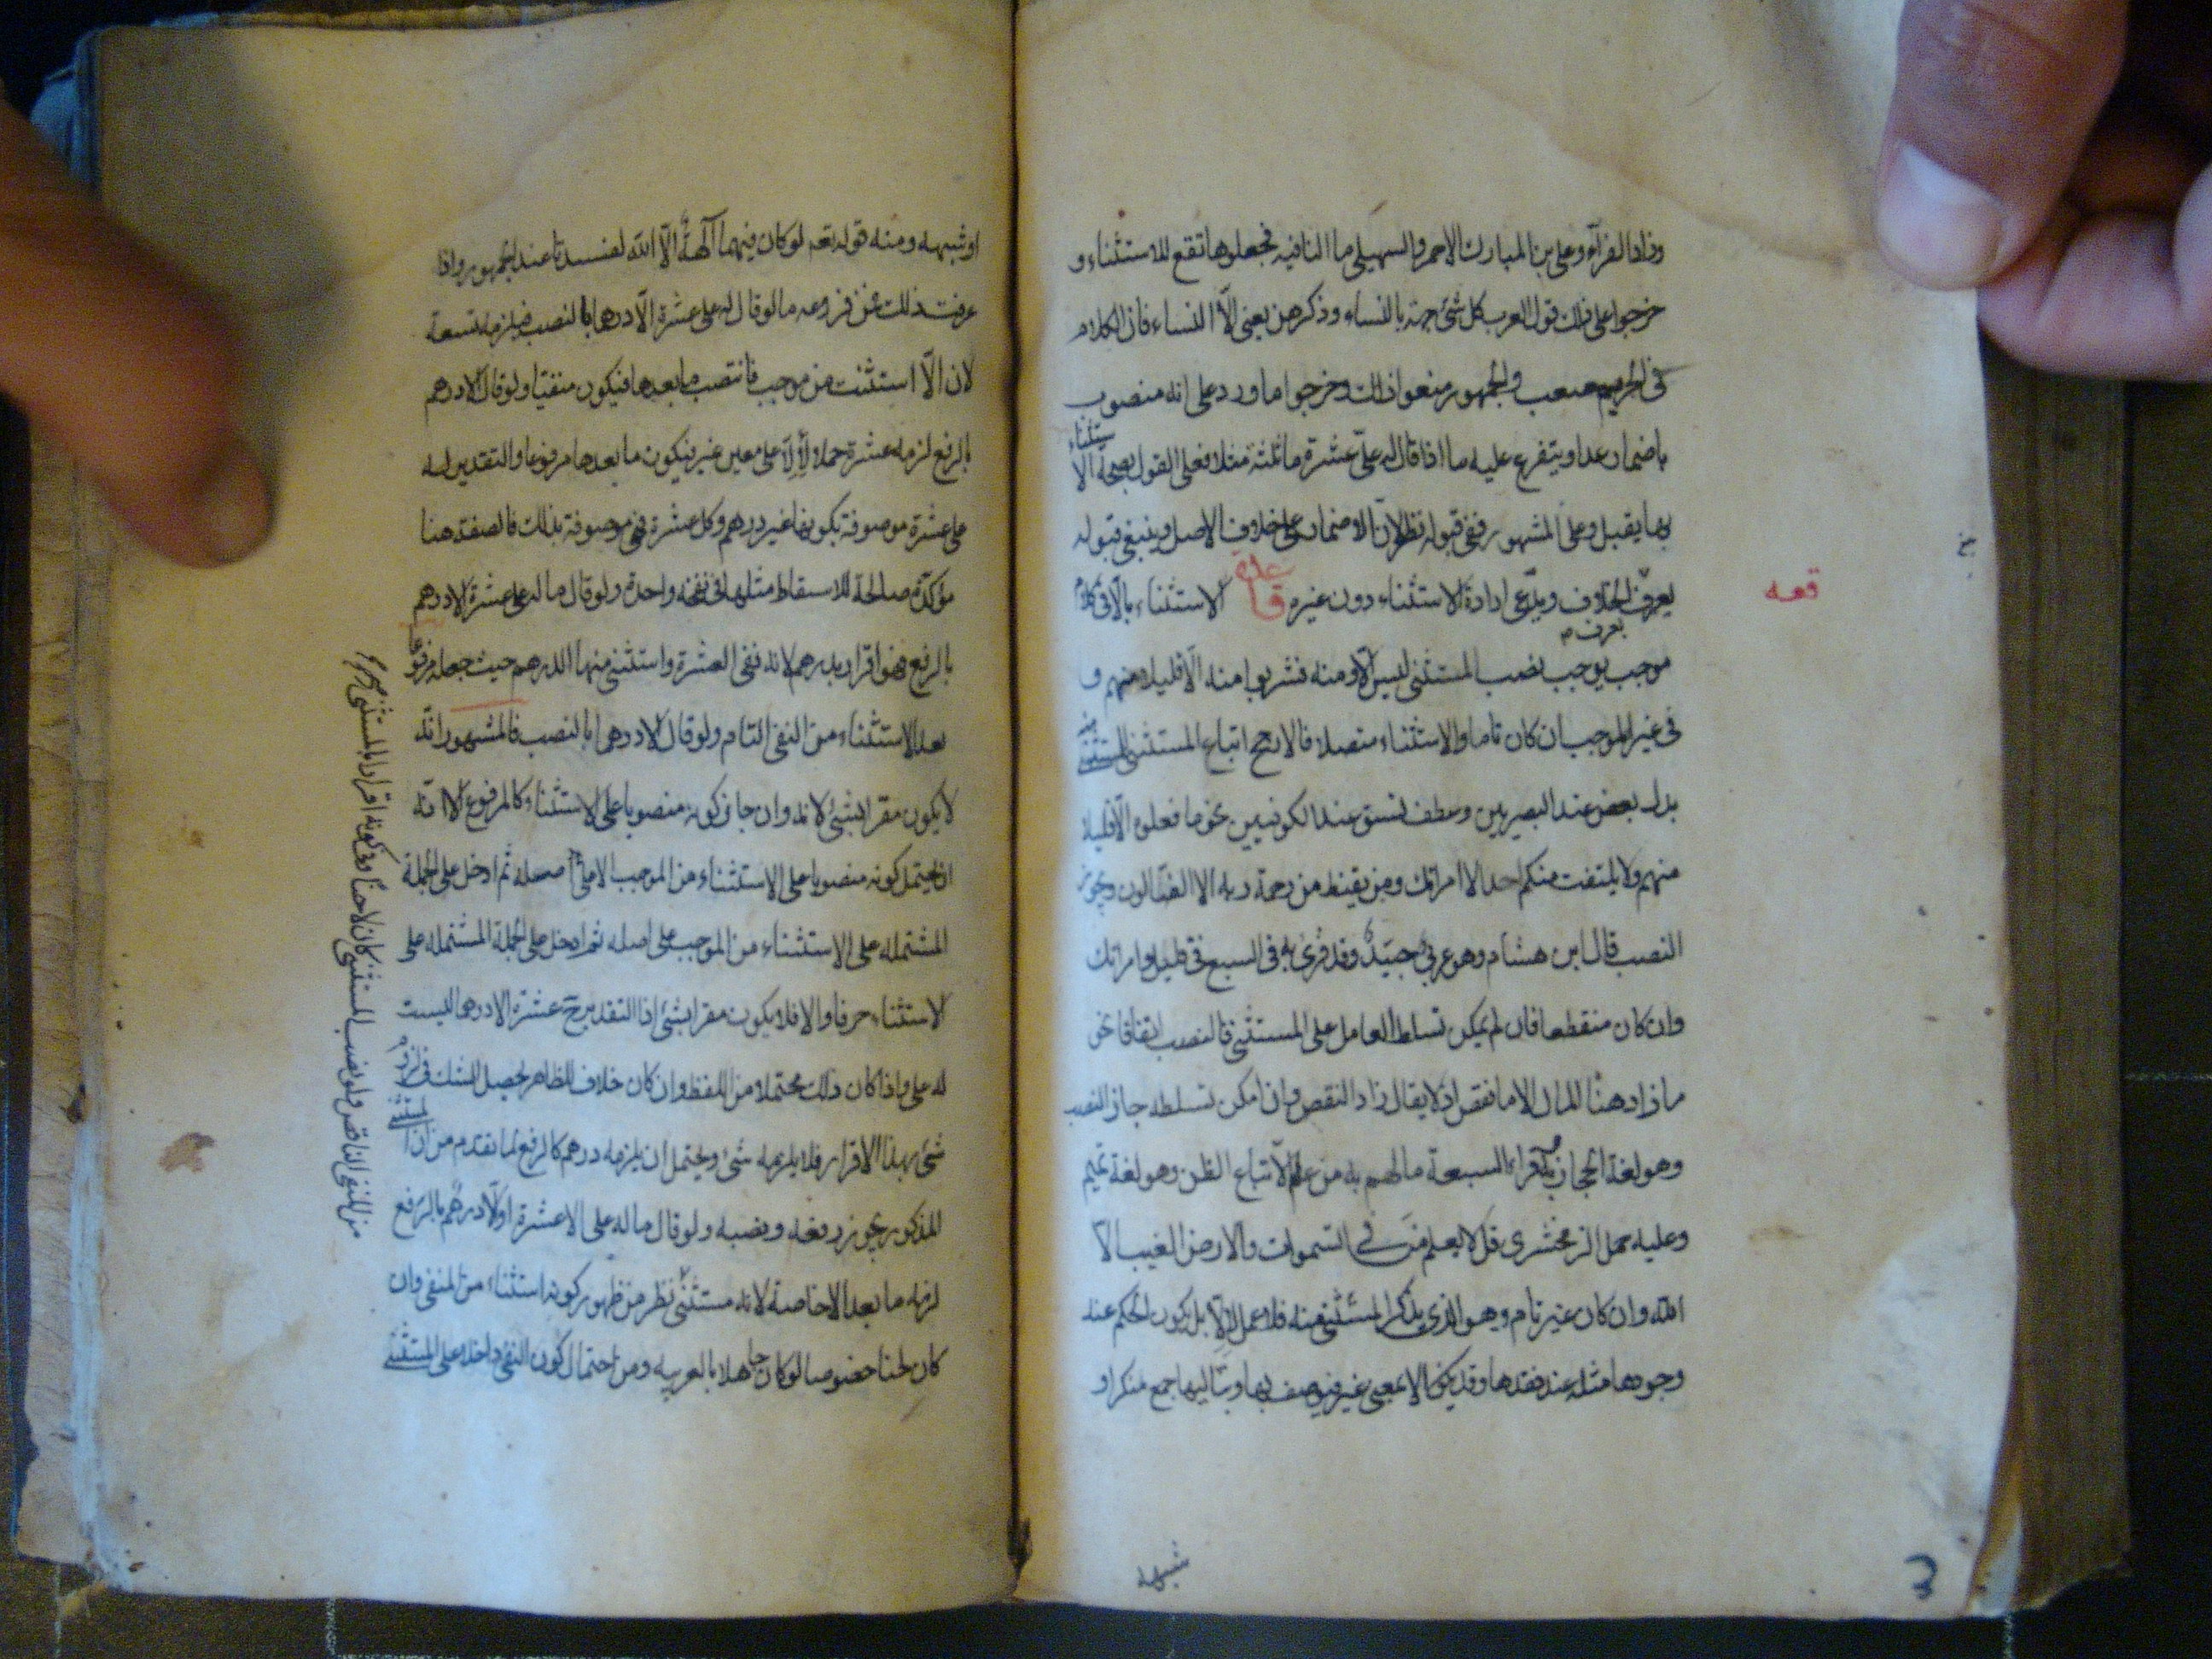 وزاد الفراء وعلى بن المبارك الاحمر والسهيلى ما النافيه فجعلوها تقع للاستثناء و
خرجوا على ذلك قول العرب كل شئ مهه ما النساء وذكرهن يعنى الّا النساء فان الكلام
فى الحريم صعب والجمهور منعوا ذلك وخرجوا ما ورد على انه منصوب
باضمار عدا ويتفرع عليه ما اذا قال له علىّ عشرة ما ثلثة مثلا فعلى القول بصحة الاستثناء
بها يقبل وعلى المشهور ففى قبوله نظر لان الاضمار على خلاف الاصل وينبغى قبوله
ممن يعرف الخلاف ويدّعى ارادة الاستثناء دون غيره قاعدة الاستثناء بالّا فى كلام
قعه
موجب يوجب نصب المستثنى ليس الّا ومنه فشربوا منه الّا قليلا منهم و
فى غير الموجب ان كان تاما والاستثناء متصلا فالارجح اتباع المستثنى للمستثنى منه
بدل بعض عند البصريين وعطف نسق عند الكوفيين نحو ما فعلوه الّا قليلا
منهم ولا يلتفت منكم احد الا امراتك ومن يقنط من رحمة ربه الا الضالون ويجوز
النصب قال ابن هشام وهو عربىّ جيّد وقد قرئ به فى السبع فى قليل وامراتك
وان كان منقطعا فان لم يمكن تسلط العامل على المستثنى فالنصب اتفاقا نحو
ما زاد هذا المال الا ما نقص اذ لا يقال زاد النقص وان امكن تسلطه جاز النصب
وهو لغة الحجاز وبه قراء السبعة ما لهم به من علم الّا اتباع الظن وهو لغة تميم
وعليه حمل الزمخشرى قل لا يعلم من فى السموات والارض الغيب الا
الله وان كان غير تام وهو الذى يذكر المستثنى منه فلا عمل لالّا بل يكون الحكم عند
وجودها مثله عند فقدها وقد يكون الا بمعنى غير فيوصف بها وبتاليها جمع منكر او
شبهه
او شبهه ومنه قوله تعم لو كان فيهما آلهة الّا الله لفسدتا عند الجمهور واذا
عرفت ذلك فمن فروعه ما لو قال له على عشرة الّا درهما بالنصب فيلزمه تسعة
لان الّا استثنت من موجب فانتصب ما بعدها فيكون منفيا ولو قال الا درهم
بالرفع لزمه عشرة حملا لالّا على معنى غير فيكون ما بعدها مرفوعا والتقدير له
على عشرة موصوفة بكونها غير درهم وكل عشرة فهى موصوفة بذلك فالصفة هنا
مؤكدة صالحة للاسقاط مثلها فى نفخة واحدة ولو قال ما له على عشرة الا درهم
بالرفع فهو اقرار بدرهم لانه نفى العشرة واستثنى منها الدرهم حيث جعله مرفوعا
بعد الاستثناء من النفى التام ولو قال الا درهما بالنصب فالمشهور انه
لا يكون مقرا بشئ لانه وان جاز كونه منصوبا على الاستثناء كالمرفوع الا انه
يحتمل كونه منصوبا على الاستثناء من الموجب ثم ادخل على الجملة
المشتمله على الاستثناء من الموجب على اصله ثم ادخل على الجملة المشتمله على
الاستثناء حرفا والا فلا يكون مقرا بشئ اذا التقدير ح عشرة الا درهما ليست
له على واذا كان ذلك محتملا من اللفظ وان كان خلاف الظاهر لحصل الشك فى لزوم
شئ بهذا الاقرار فلا يلزمه شئ ويحتمل ان يلزمه درهم كالرفع لما تقدم من ان المستثنى
المذكور يجوز رفعه ونصبه ولو قال ما له على الا عشرة او الّا درهم بالرفع
لزمه ما بعد الا خاصة لانه مستثنى نظر من ظهور كونه استثناء من المنفى وان
كان لحنا خصوصا لو كان جاهلا بالعربيه ومن احتمال كون النفى داخلا على المستثنى
من المنفى الناقص ولو نصب المستثنى كان لاحنا وفى كونه اقرارا بالمستثنى